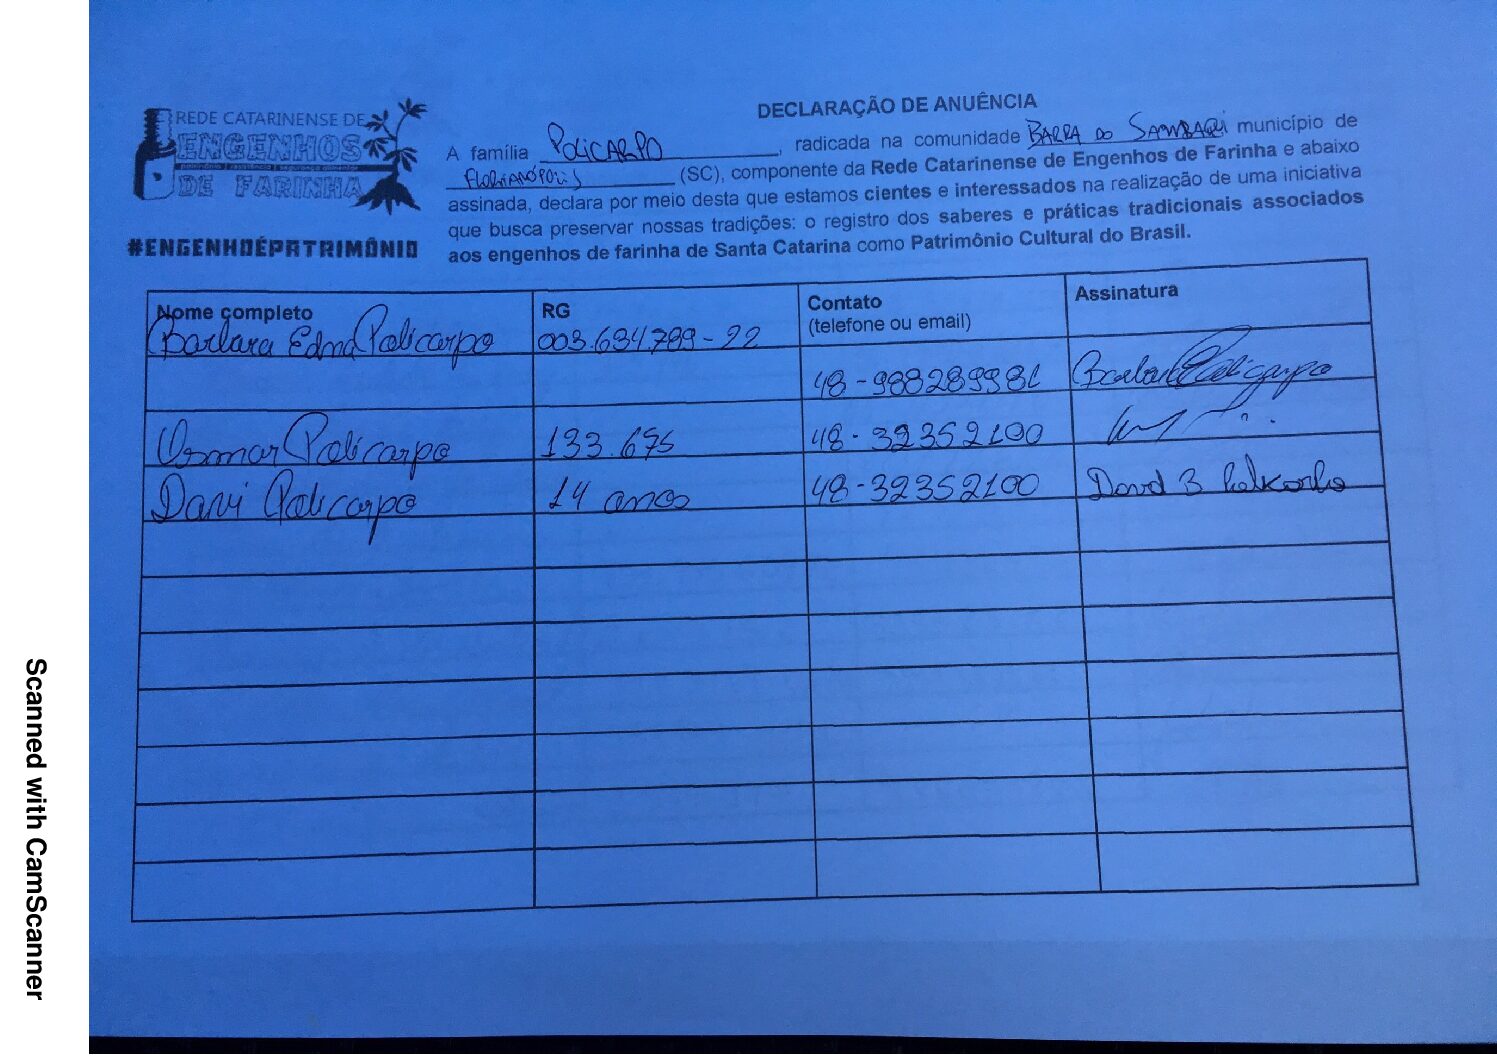 REDE CATARINENSE DE
ENGENHOS
DE FARINHA
#ENGENHOÉPATRIMÔNIO
DECLARAÇÃO DE ANUÊNCIA
A família POLICARPO, radicada na comunidade BARRA DO SAMBAQUI município de
FLORIANÓPOLIS (SC), componente da Rede Catarinense de Engenhos de Farinha e abaixo
assinada, declara por meio desta que estamos cientes e interessados na realização de uma iniciativa
que busca preservar nossas tradições: o registro dos saberes e práticas tradicionais associados
aos engenhos de farinha de Santa Catarina como Patrimônio Cultural do Brasil.
Nome completo RG Contato (telefone ou email) Assinatura
Barbara Edna Policarpo 003.634.789-22 48-988289981 Barbara Policarpo
Osmar Policarpo 133.675 48-32352100
Davi Policarpo 14 anos 48-32352100 David B Policarpo
Scanned with CamScanner